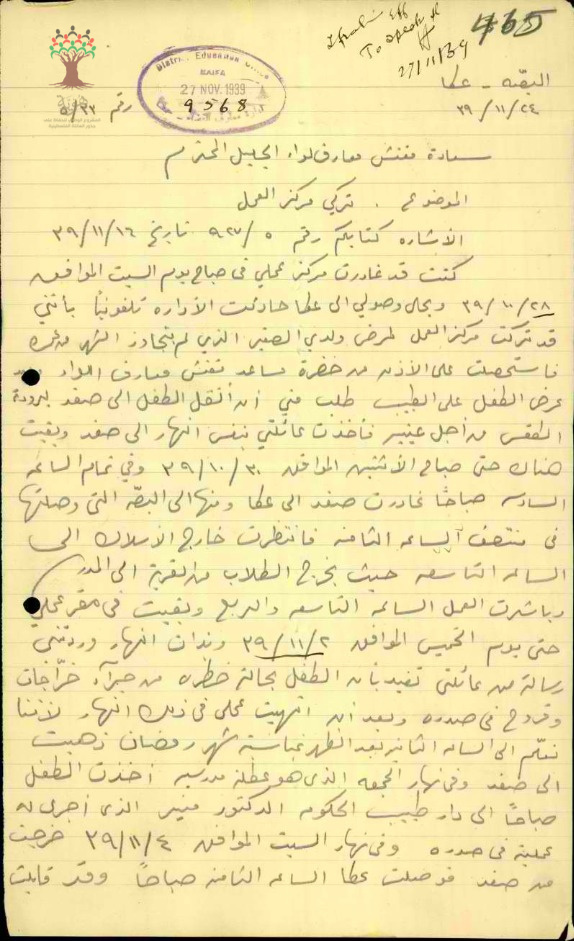 465
To speak
27/11/39
District Education Office
HAIFA
27 NOV. 1939
9568
البصّه - عكا
٣٩/١١/٢٤
رقم ٥/٢٢
سعادة مفتش معارف لواء الجليل المحترم
الموضوع . تركي مركز العمل
الاشاره كتابكم رقم ٥/٩٢٧ تاريخ ٣٩/١١/١٦
كنت قد غادرت مركز عملي في صباح يوم السبت الموافق
٣٩/١٠/٢٨ وبحال وصولي الى عكا حادثت الأداره تلفونيًا بأنني
قد تركت مركز العمل لمرض ولدي الصغير الذي لم يتجاوز الشهر من عمره
فاستحصلت على الأذن من حضرة مساعد مفتش معارف اللواء
عرض الطفل على الطبيب طلب مني أن أنقل الطفل الى صفد لبرودة
الطقس من أجل فأخذت عائلتي بنفس النهار الى صفد وبقيت
هناك حتى صباح الأثنين الموافق ٣٩/١٠/٣٠ وفي تمام الساعه
السادسه صباحًا غادرت صفد الى عكا ومنها الى البصّه التي وصلتها
في منتصف الساعه الثامنه فانتظرت خارج الأسلاك الى
الساعه التاسعه حيث يخرج الطلاب من القرية الى المدرسه
وباشرت العمل الساعه التاسعه والربع وبقيت في مقر عملي
حتى يوم الخميس الموافق ٣٩/١١/٢ وبذات النهار وردتني
رسالة من عائلتي تفيد بأن الطفل بحالة خطره من جرآء خرّاجات
وقروح في صدره وبعد أن انتهيت عملي في ذلك النهار لأننا
نعلّم الى الساعه الثانيه بعد الظهر بمناسبة شهر رمضان ذهبت
الى صفد وفي نهار الجمعه الذي هو عطلة مدرسيه أخذت الطفل
صباحًا الى دار طبيب الحكومه الدكتور منير الذي أجرى له
عملية في صدره وفي نهار السبت الموافق ٣٩/١١/٤ خرجت
من صفد فوصلت عكا الساعه الثامنه صباحًا وقد قابلت